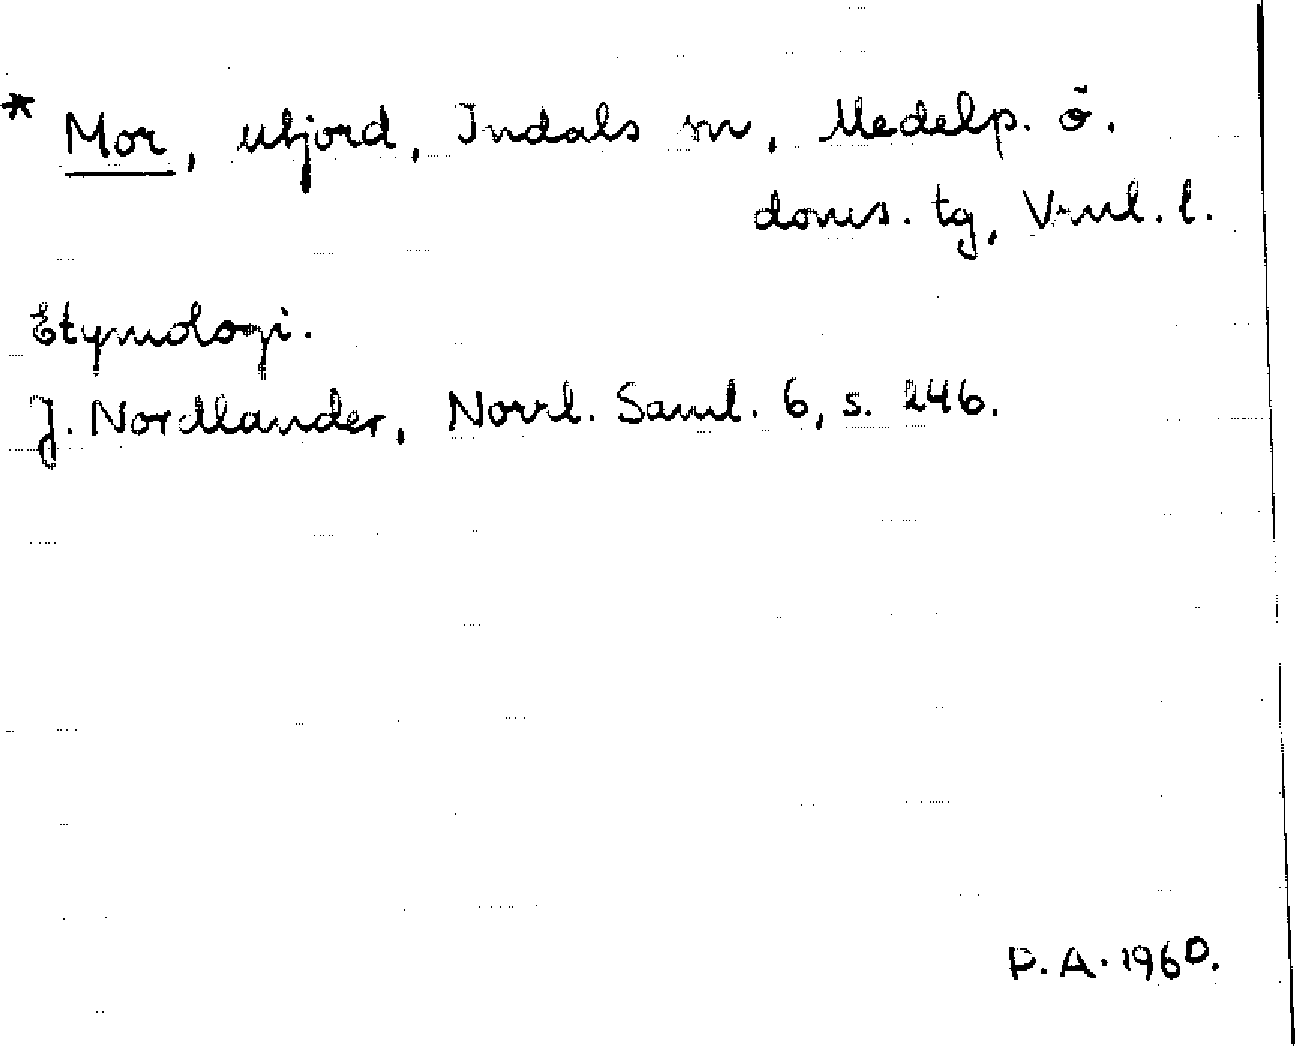 * Mor, utjord, Indals sn, Medelp. ö.
doms. tg, Vnl. l.
Etymologi.
J. Nordlander, Norrl. Saml. 6, s. 246.
P.A. 1960.